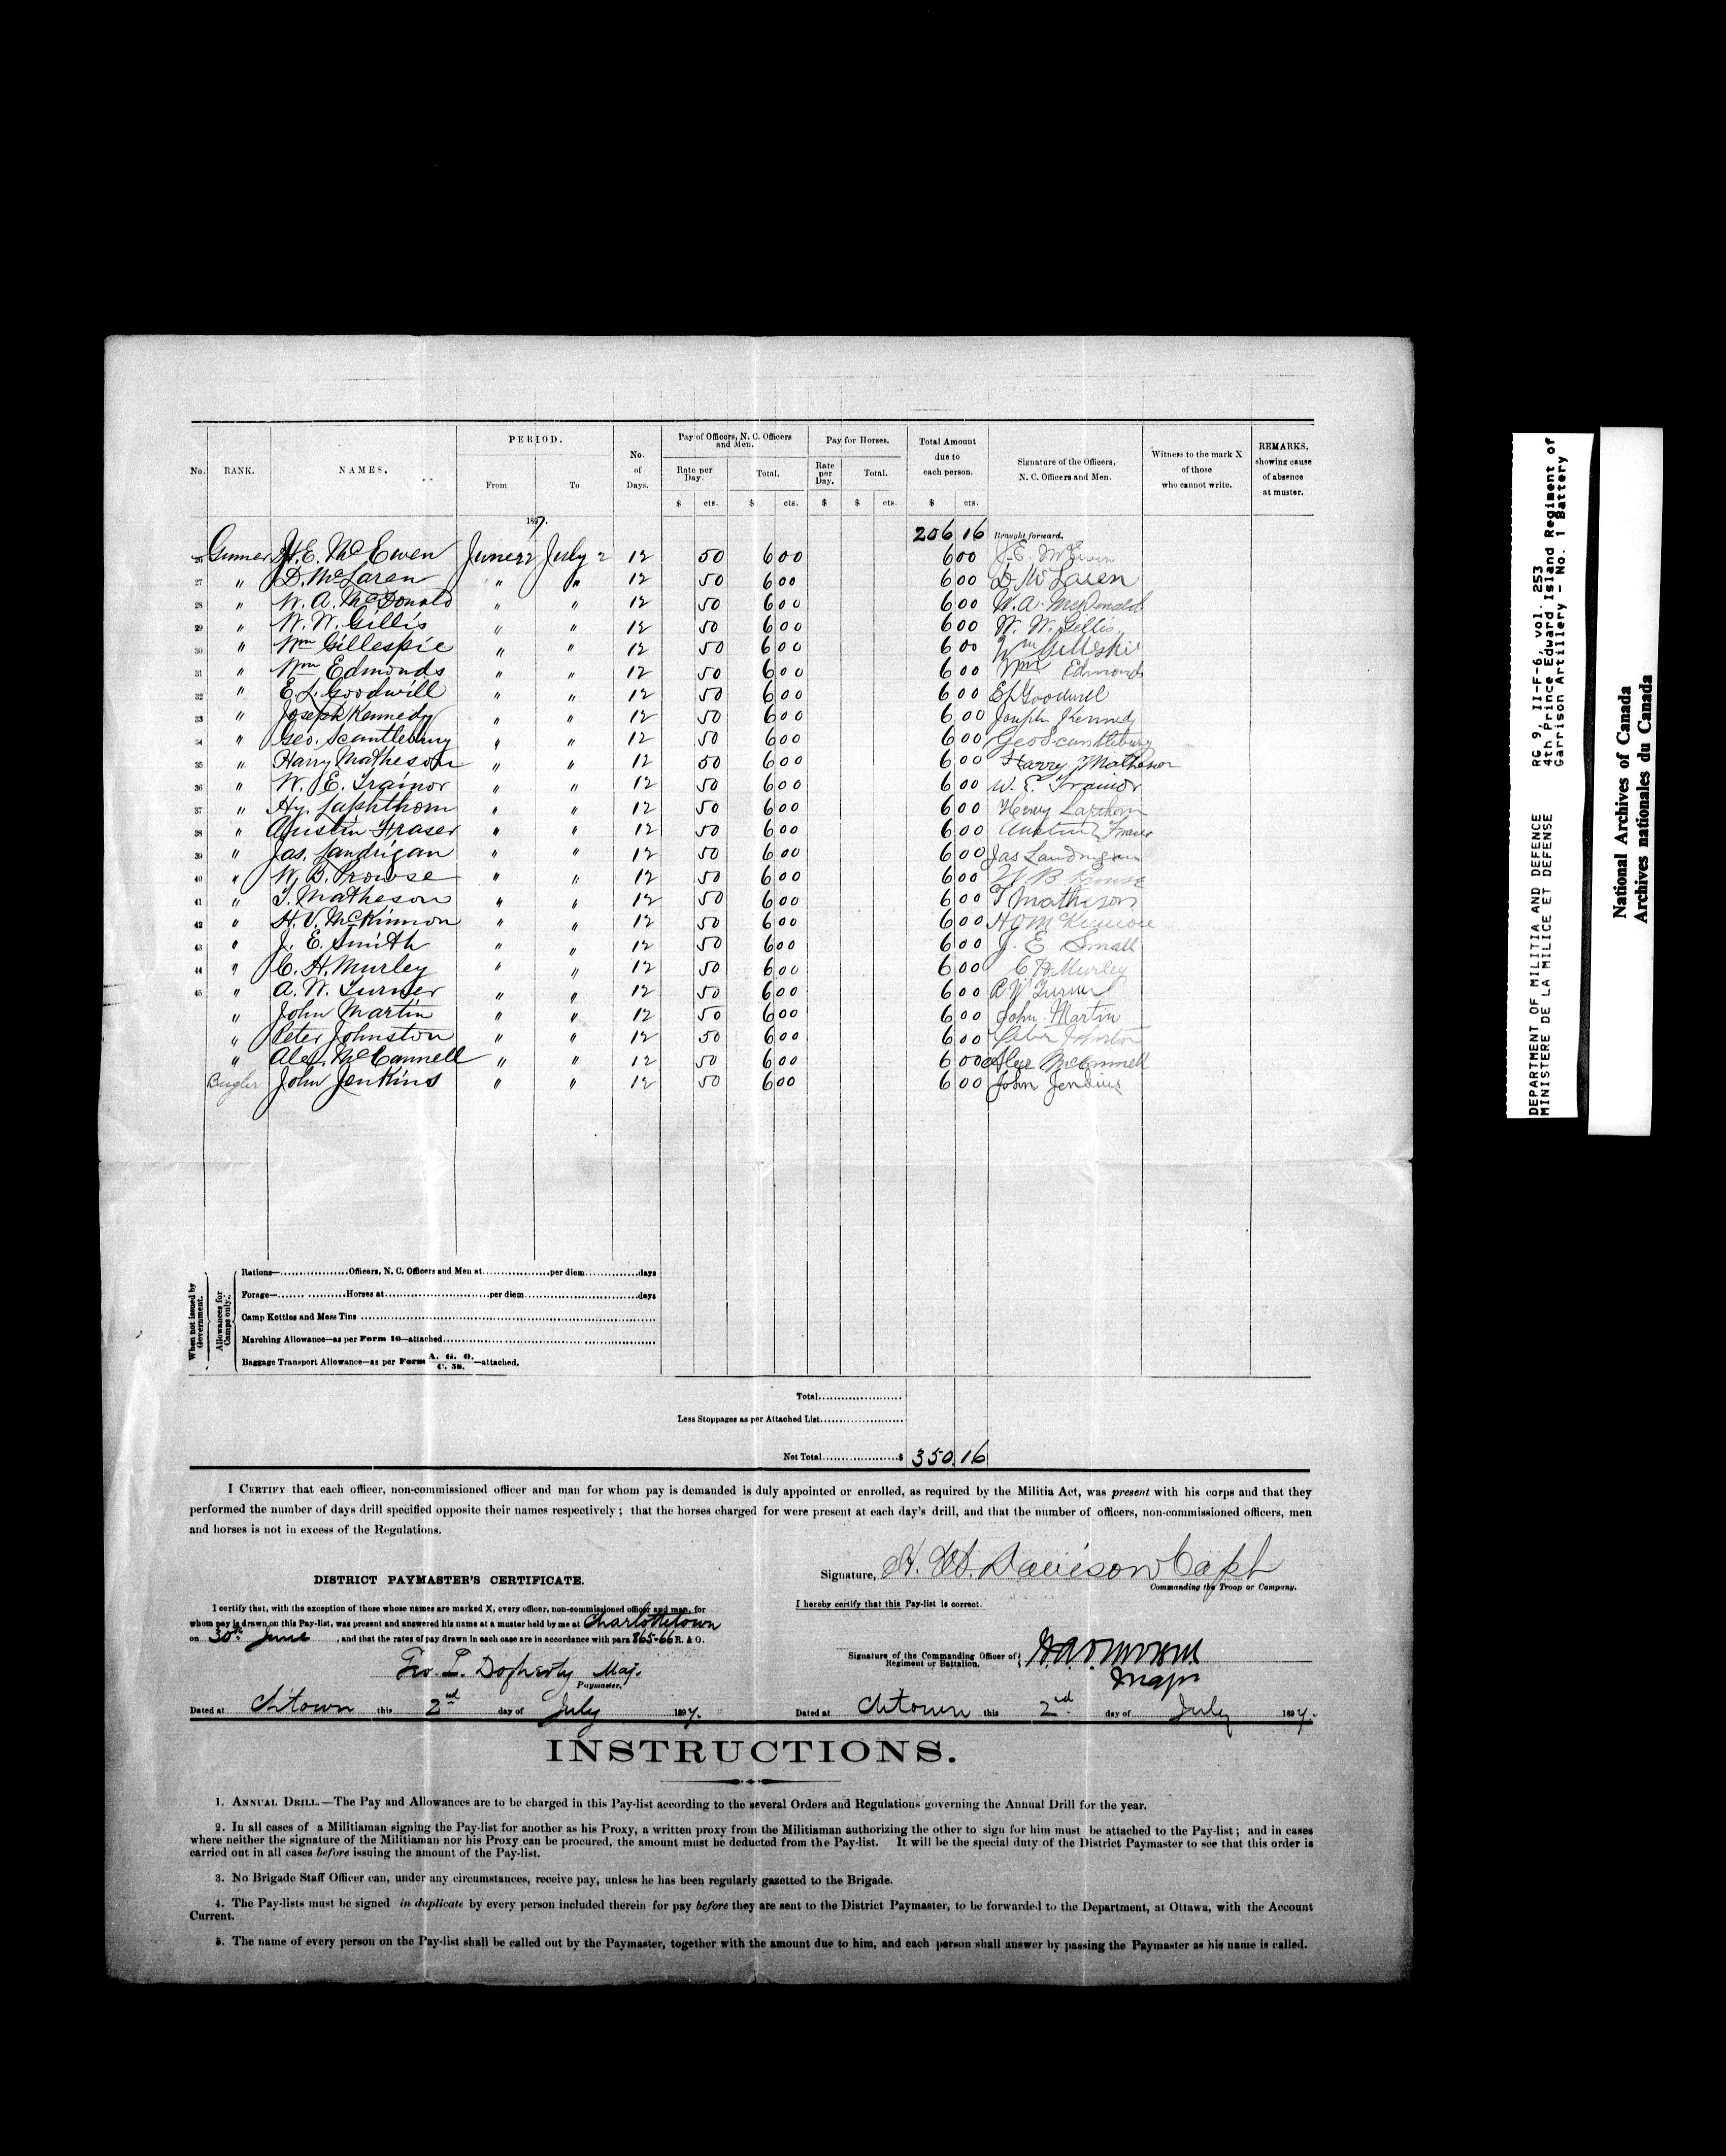 No. RANK. NAMES. PERIOD. From To No. of Days. Pay of Officers, N. C. Officers and Men. Rate per Day. $ cts. Total. $ cts. Pay for Horses. Rate per Day. $ Total. $ cts. Total Amount due to each person. $ cts. Signature of the Officers, N. C. Officers and Men. Witness to the mark X of those who cannot write. REMARKS, showing cause of absence at muster.
1897.
206 16 Brought forward.
26 Gunner H. E. McEwen June 22 July 2 12 50 6 00 6 00 J. E. McEwen
27 " D. McLaren " " 12 50 6 00 6 00 D. McLaren
28 " W. A. McDonald " " 12 50 6 00 6 00 W. A. McDonald
29 " W. W. Gillis " " 12 50 6 00 6 00 W. W. Gillis
30 " Wm Gillespie " " 12 50 6 00 6 00 Wm Gillespie
31 " Wm Edmonds " " 12 50 6 00 6 00 Wm Edmonds
32 " E. L. Goodwill " " 12 50 6 00 6 00 E L Goodwill
33 " Joseph Kennedy " " 12 50 6 00 6 00 Joseph Kennedy
34 " Geo. Scantlebury " " 12 50 6 00 6 00 Geo Scantlebury
35 " Harry Matheson " " 12 50 6 00 6 00 Harry Matheson
36 " W. E. Trainor " " 12 50 6 00 6 00 W. E. Trainor
37 " Hy. Laphthorn " " 12 50 6 00 6 00 Henry Lapthorn
38 " Austin Fraser " " 12 50 6 00 6 00 Austin Fraser
39 " Jas. Landrigan " " 12 50 6 00 6 00 Jas Landrigan
40 " W. B. Prowse " " 12 50 6 00 6 00 W B Prowse
41 " T. Matheson " " 12 50 6 00 6 00 T Matheson
42 " H. V. McKinnon " " 12 50 6 00 6 00
43 " J. E. Smith " " 12 50 6 00 6 00 J. E Small
44 " C. H. Murley " " 12 50 6 00 6 00 C H Murley
45 " A. W. Turner " " 12 50 6 00 6 00 A W Turner
" John Martin " " 12 50 6 00 6 00 John Martin
" Peter Johnston " " 12 50 6 00 6 00 Peter Johnston
" Alex. McConnell " " 12 50 6 00 6 00 Alex McConnell
Bugler John Jenkins " " 12 50 6 00 6 00 John Jenkins
When not issued by Government.
Allowances for Camps only.
Rations—..................Officers, N. C. Officers and Men at..................per diem..............days
Forage—..................Horses at..................per diem..............days
Camp Kettles and Mess Tins ..................
Marching Allowance—as per Form 10—attached..................
Baggage Transport Allowance—as per Form A. G. O. / C. 58. —attached.
Total......................
Less Stoppages as per Attached List......................
Net Total....................$ 350 16
I CERTIFY that each officer, non-commissioned officer and man for whom pay is demanded is duly appointed or enrolled, as required by the Militia Act, was present with his corps and that they
performed the number of days drill specified opposite their names respectively; that the horses charged for were present at each day's drill, and that the number of officers, non-commissioned officers, men
and horses is not in excess of the Regulations.
Signature, Davison Capt
Commanding the Troop or Company.
DISTRICT PAYMASTER'S CERTIFICATE.
I certify that, with the exception of those whose names are marked X, every officer, non-commissioned officer and man, for
whom pay is drawn on this Pay-list, was present and answered his name at a muster held by me at Charlottetown
on 30th June , and that the rates of pay drawn in each case are in accordance with para 865-66 R. & O.
Geo. Dogherty Maj.
Paymaster.
Dated at Ch'town this 2nd day of July 1897.
I hereby certify that this Pay-list is correct.
Signature of the Commanding Officer of Regiment or Battalion.
Major
Dated at Ch'town this 2nd day of July 1897.
INSTRUCTIONS.
1. ANNUAL DRILL.—The Pay and Allowances are to be charged in this Pay-list according to the several Orders and Regulations governing the Annual Drill for the year.
2. In all cases of a Militiaman signing the Pay-list for another as his Proxy, a written proxy from the Militiaman authorizing the other to sign for him must be attached to the Pay-list; and in cases
where neither the signature of the Militiaman nor his Proxy can be procured, the amount must be deducted from the Pay-list. It will be the special duty of the District Paymaster to see that this order is
carried out in all cases before issuing the amount of the Pay-list.
3. No Brigade Staff Officer can, under any circumstances, receive pay, unless he has been regularly gazetted to the Brigade.
4. The Pay-lists must be signed in duplicate by every person included therein for pay before they are sent to the District Paymaster, to be forwarded to the Department, at Ottawa, with the Account
Current.
5. The name of every person on the Pay-list shall be called out by the Paymaster, together with the amount due to him, and each person shall answer by passing the Paymaster as his name is called.
DEPARTMENT OF MILITIA AND DEFENCE RG 9, II-F-6, vol. 253
MINISTERE DE LA MILICE ET DEFENSE 4th Prince Edward Island Regiment of
Garrison Artillery - No. 1 Battery
National Archives of Canada
Archives nationales du Canada